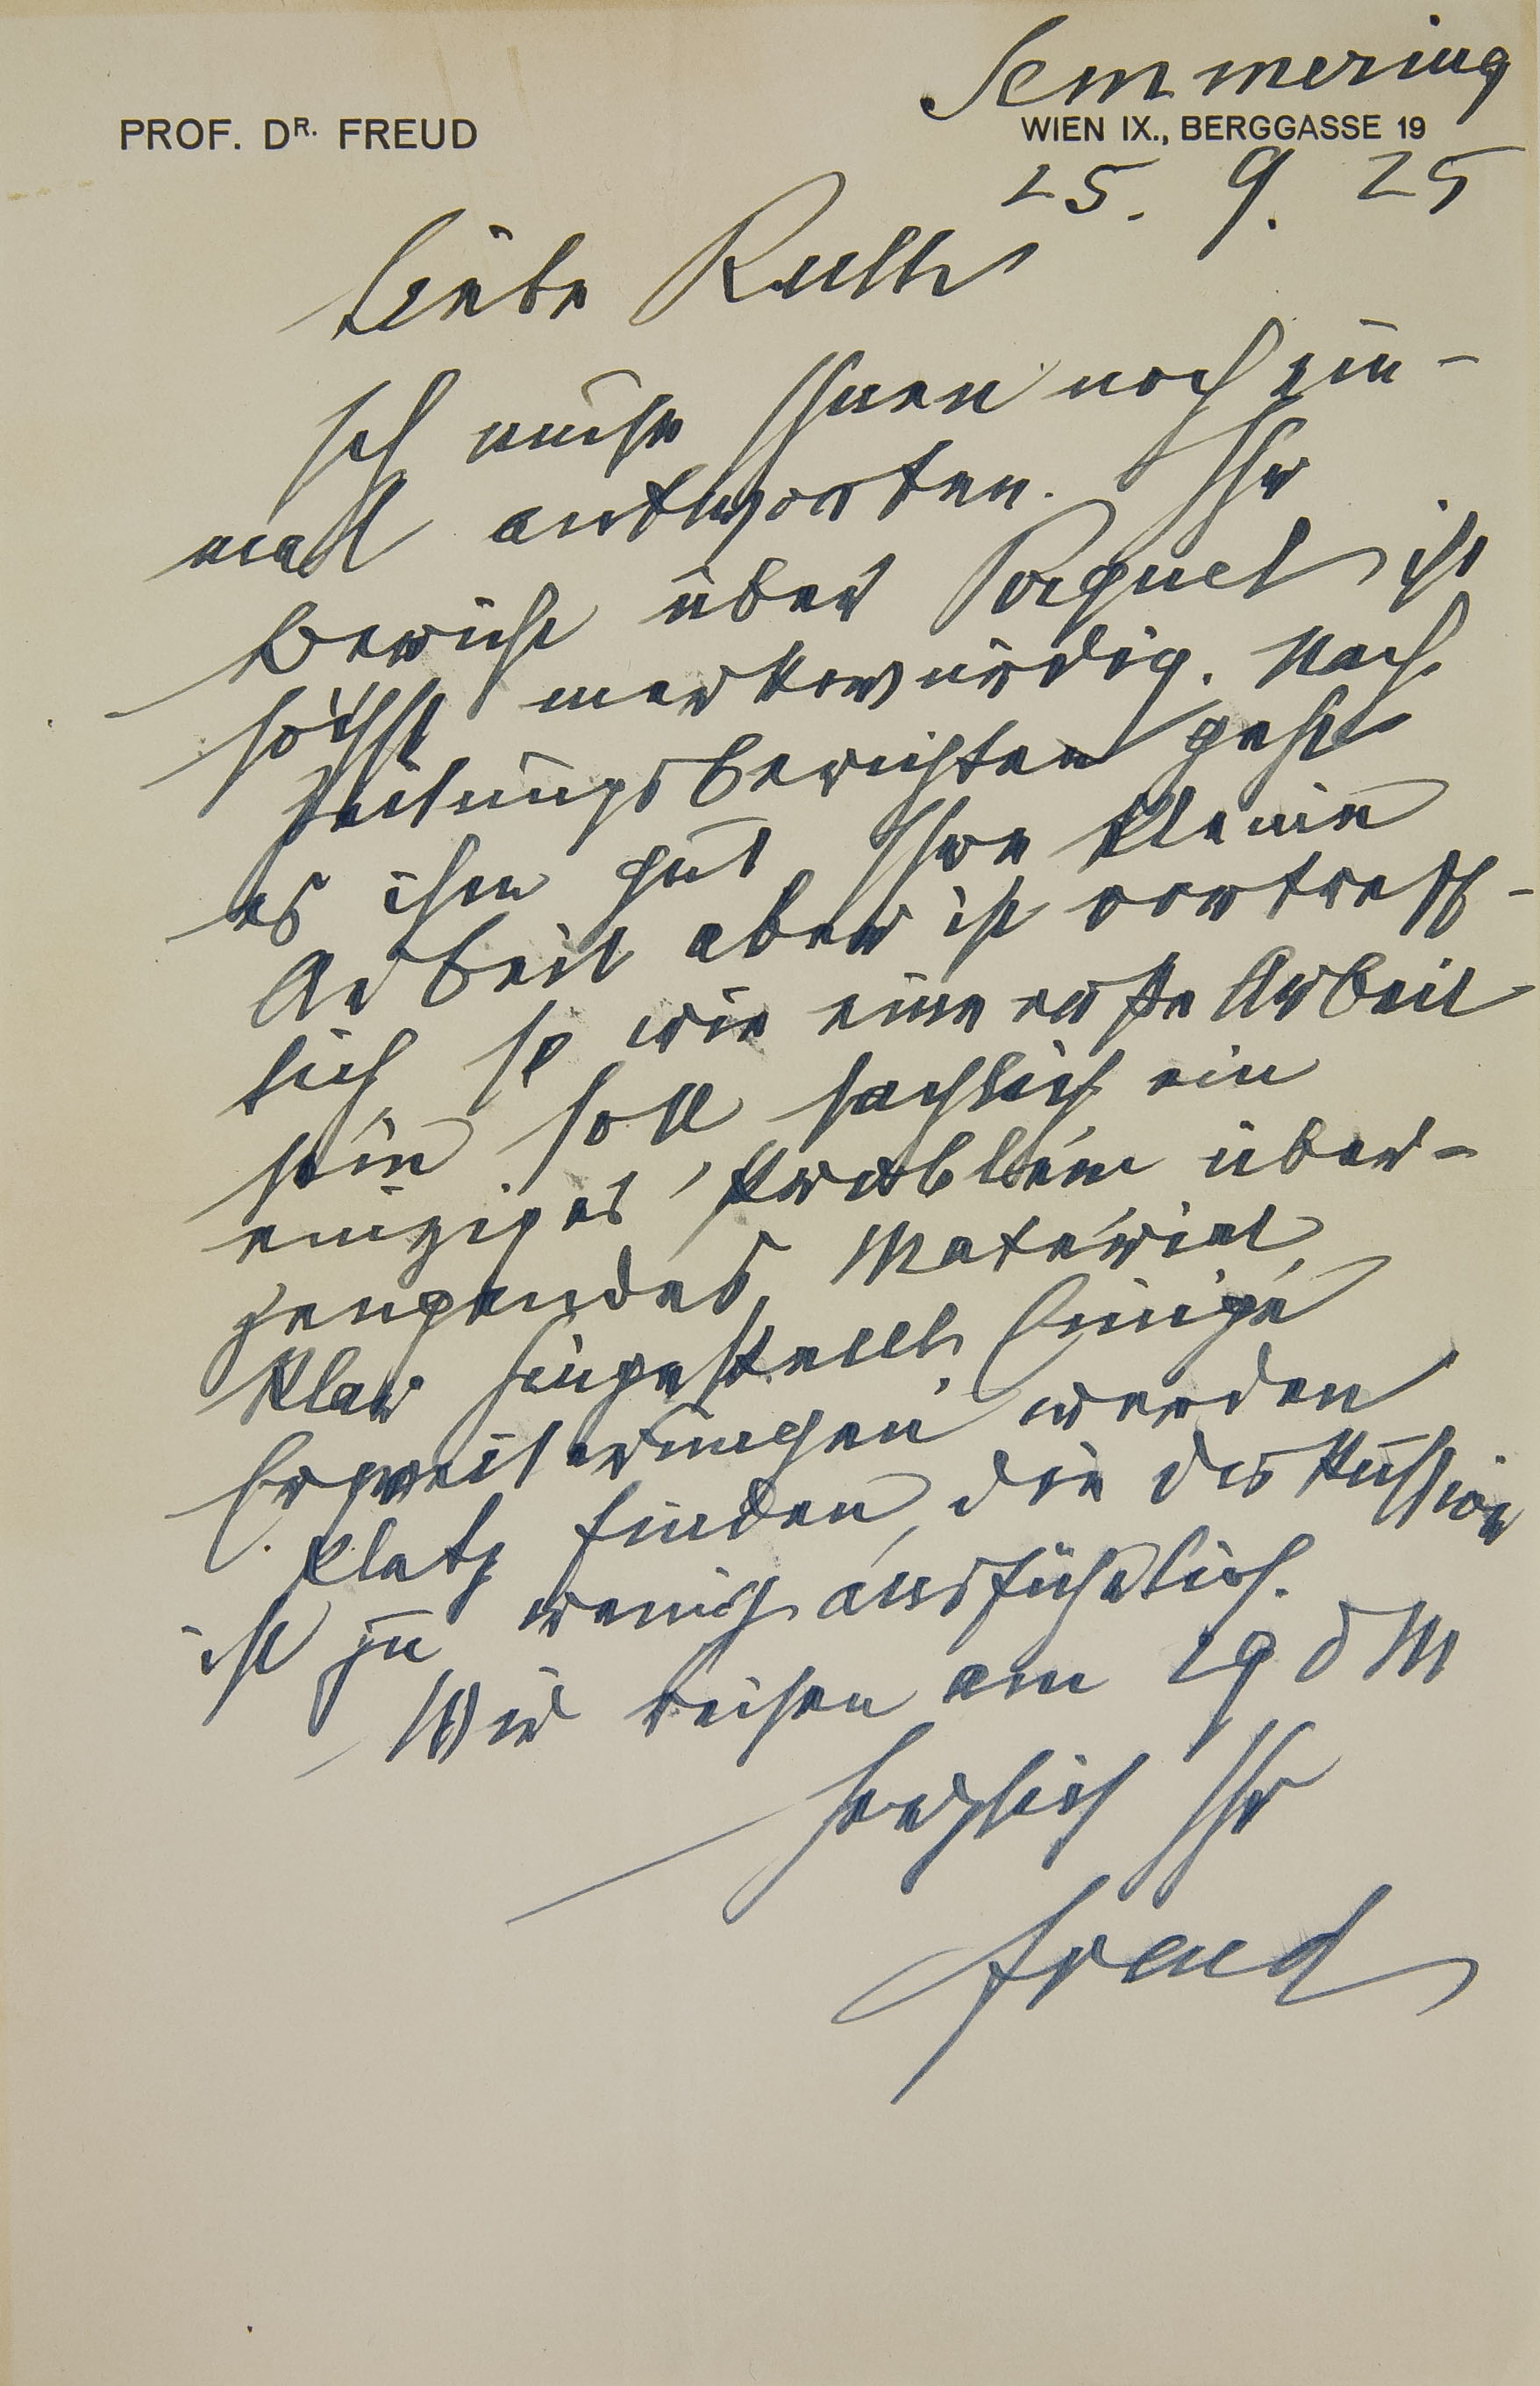 Semmering
PROF. DR. FREUD
WIEN IX., BERGGASSE 19
25. 9. 25
Liebe Ruth
Ich muß Ihnen noch ein-
mal antworten. Ihr
Bericht über Pirquet ist
höchst merkwürdig. Nach
Zeitungsberichten geht
es ihm gut. Ihre kleine
Arbeit aber ist vortreff-
lich, so wie eine erste Arbeit
sein soll sachlich ein
einziges Problem, über-
zeugendes Material,
klar hingestellt. Einige
Erweiterungen werden
Platz finden, die Diskussion
ist zu wenig ausführlich.
Wir reisen am 29 d M
Herzlich Ihr
Freud